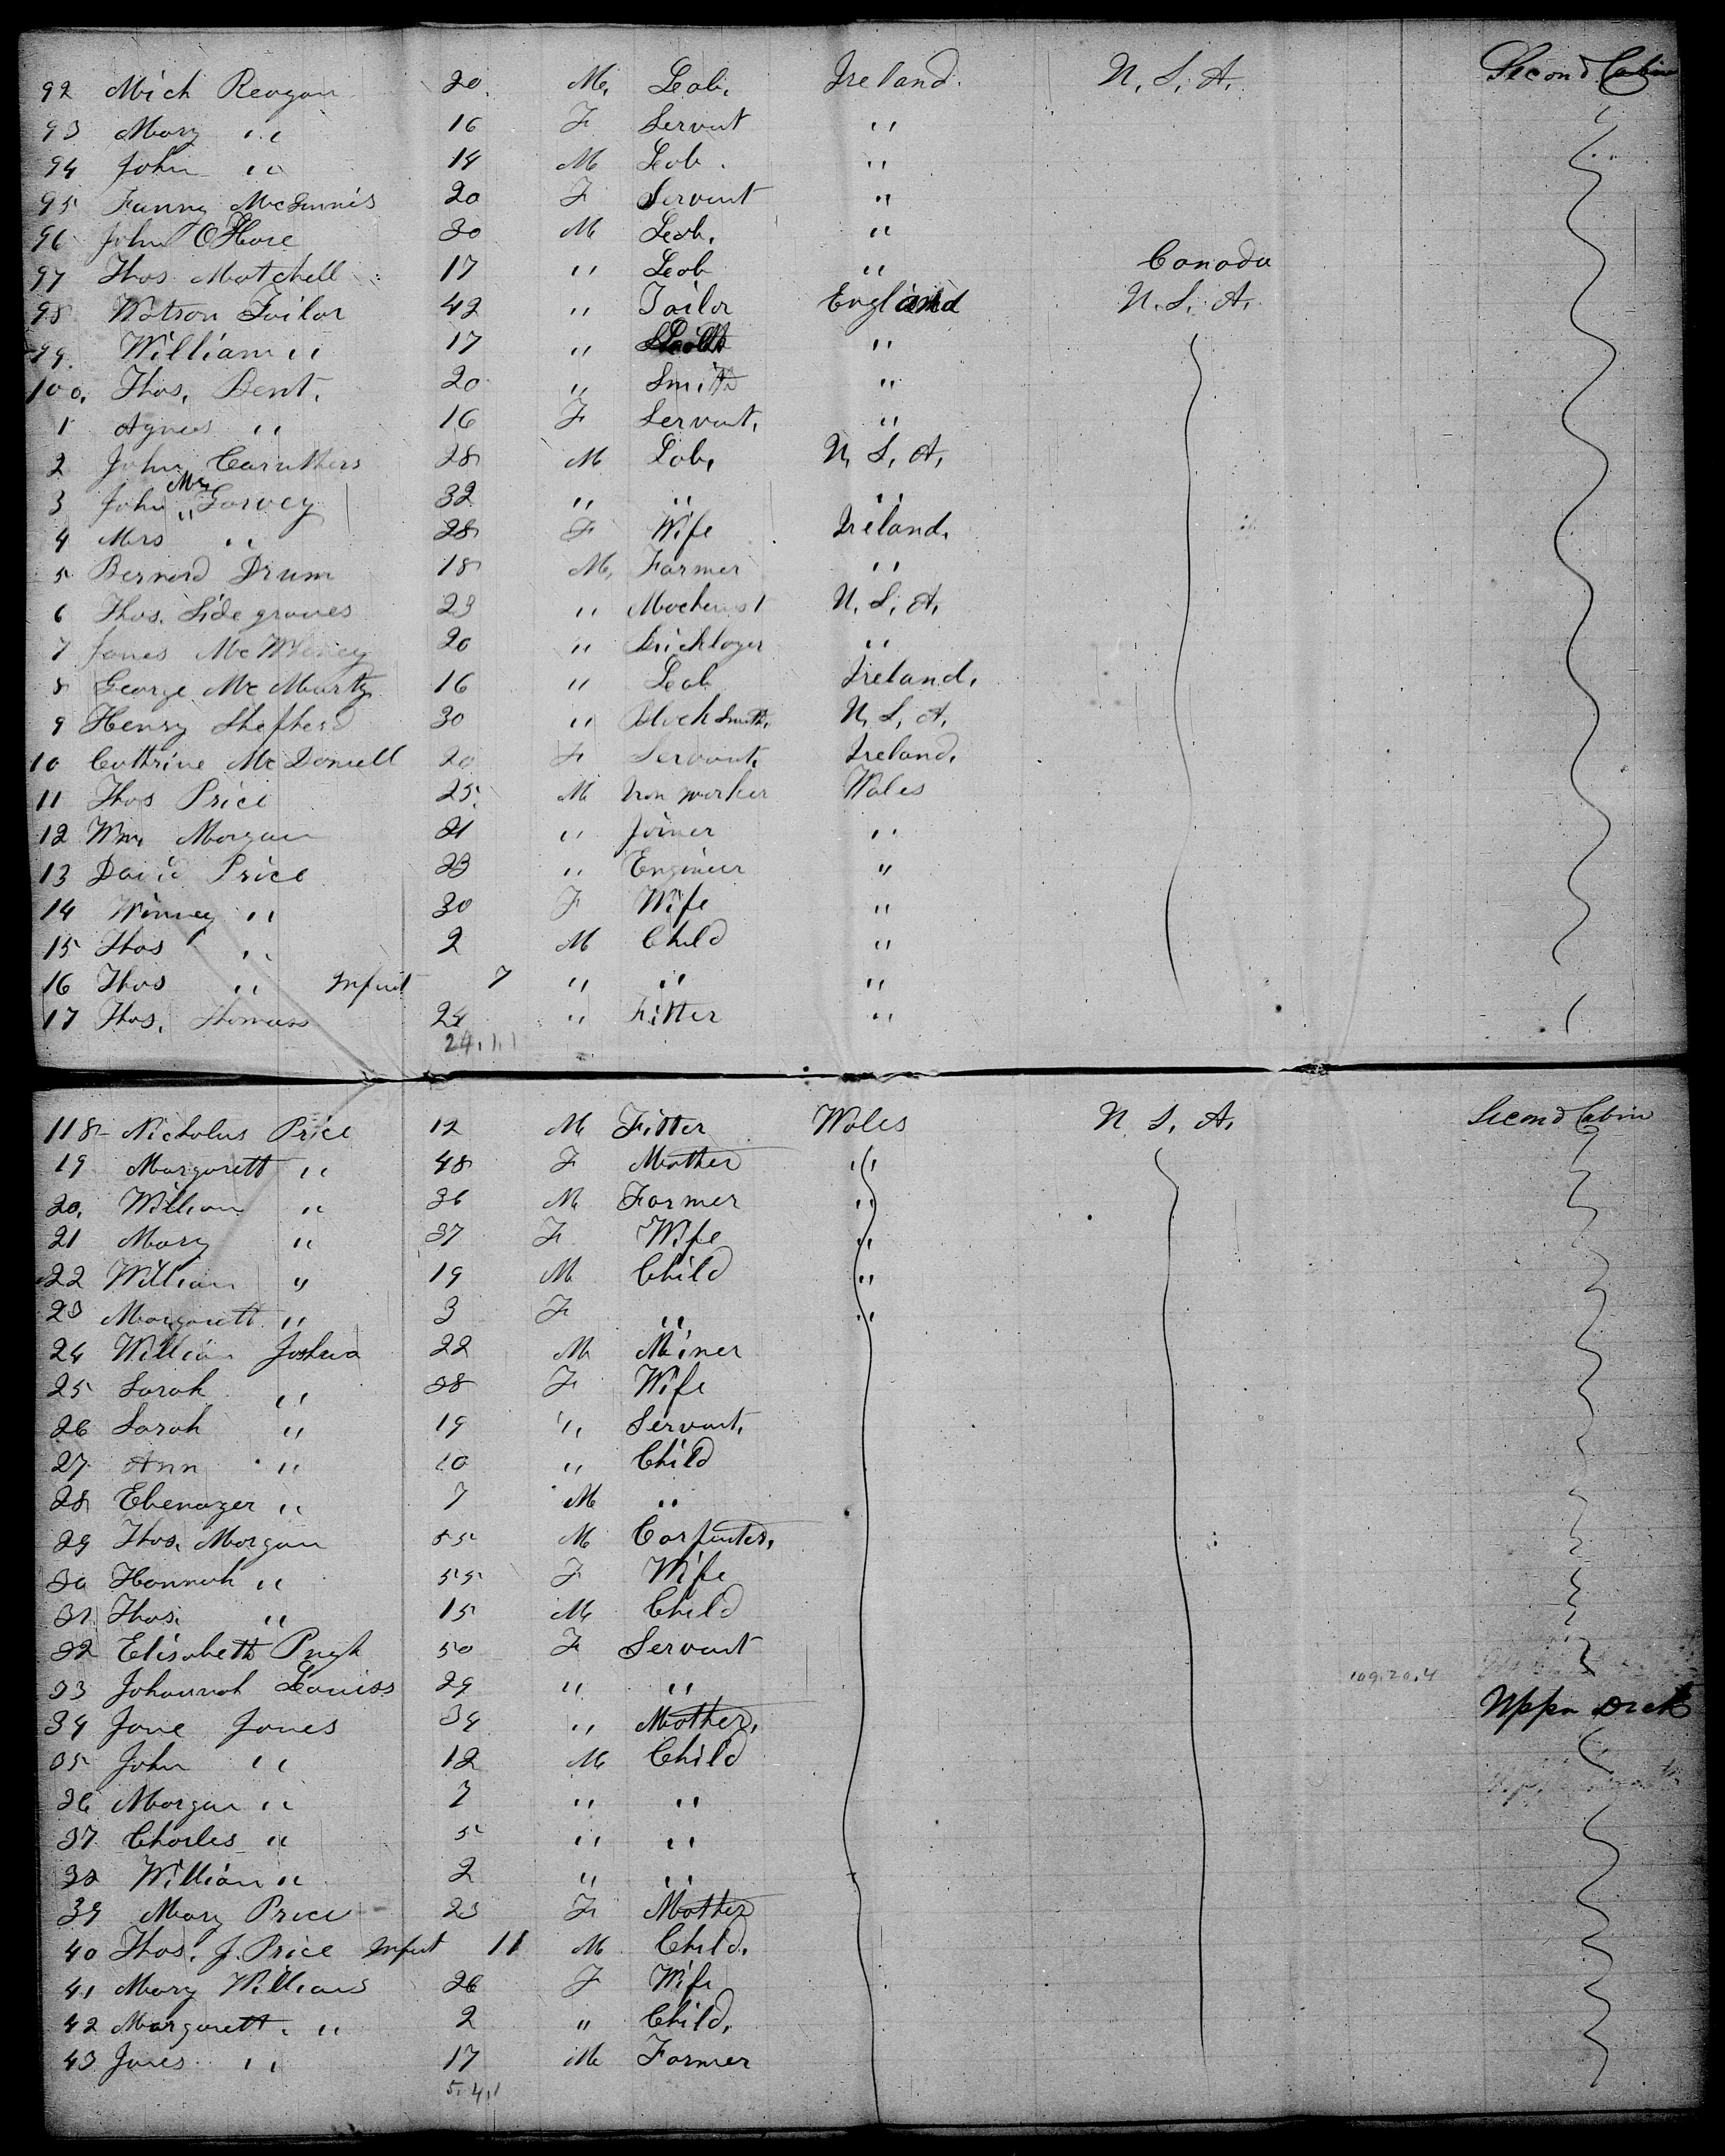 92 Mich Reagan 20 M. Lab. Ireland. U.S.A. Second Cabin
93 Mary " 16 F Servant "
94 John " 14 M Lab. "
95 Fanny McGinnis 20 F Servant "
96 John O'Hare 30 M Lab. "
97 Thos. Matchell 17 " Lab " Canada
98 Watson Tailor 42 " Tailor England U.S.A.
99. William " 17 " "
100. Thos. Dent. 20 " Smith "
1 Agnes " 16 F Servant. "
2 John Caruthers 28 M Lab. U.S.A.
3 John Mc Garvey 32 " " "
4 Mrs " 28 F Wife Ireland.
5 Bernard Drum 18 M. Farmer "
6 Thos. Sidegraves 23 " Machenist U.S.A.
7 James 20 " Bricklayer "
8 George Mc Murtry 16 " Lab Ireland.
9 Henry Shepherd 30 " Blacksmith. U.S.A.
10 Cathrine Mc Donnell 20 F Servant. Ireland.
11 Thos Price 25. M Iron worker Wales
12 Wm. Morgan 21 " Joiner "
13 David Price 23 " Engineer "
14 Winney " 30 F Wife "
15 Thos " 2 M Child "
16 Thos " Infant 7 " " "
17 Thos. Thomas 24 " Fitter "
24.1.1
118 Nicholus Price 12 M Fitter Wales U.S.A. Second Cabin
19 Margarett " 48 F Mother "
20. William " 36 M Farmer "
21 Mary " 37 F Wife "
22 William " 19 M Child "
23 Margarett " 3 F " "
24 William Joshua 22 M Miner
25 Sarah " 38 F Wife
26 Sarah " 19 " Servant.
27 Ann " 10 " Child
28 Ebenazer " 7 M "
29 Thos. Morgan 55 M Carpenter.
30 Hannah " 55 F Wife
31 Thos. " 15 M Child
32 Elisabeth Pugh 50 F Servant
33 Johannah 29 " " 109.20.4
34 Jane Jones 34 " Mother. Upper Deck
35 John " 12 M Child
36 Morgan " 7 " "
37 Charles " 5 " "
38 William " 2 " "
39 Mary Price 23 F Mother
40 Thos. J. Price Infant 11 M Child.
41 Mary Williams 26 F Wife
42 Margarett. " 2 " Child.
43 James " 17 M Farmer
5.4.1